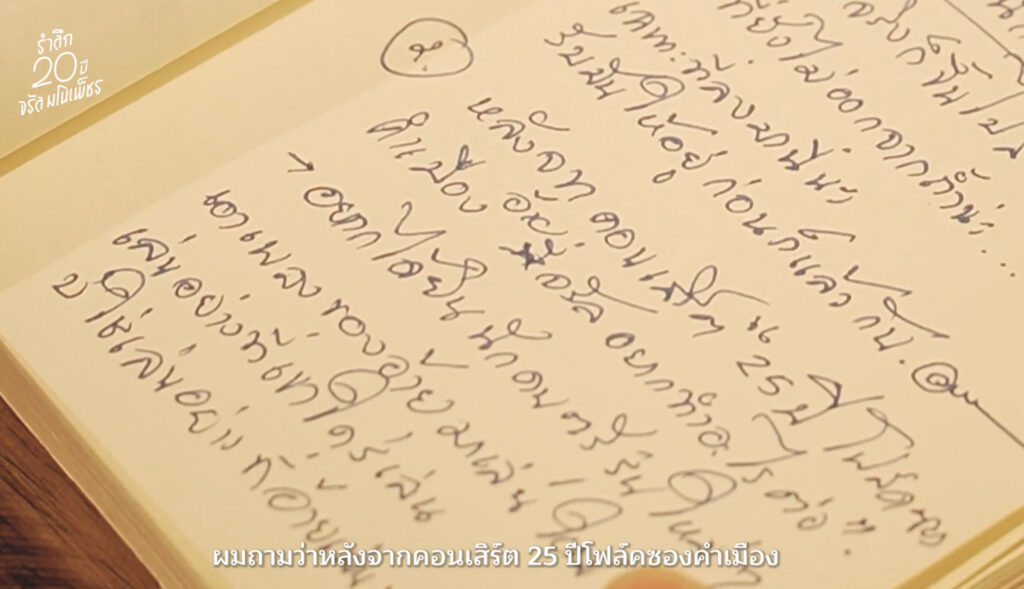 รำลึก
20 ปี
จรัล มโนเพ็ชร
ที่ยังไม่ออกจากถ้ำน่ะ...
เคท. ที่ลงมานี่นะ
รับมันให้อยู่ก่อนก็แล้วกัน.
๕.
หลังจาก คอนเสิร์ต 25 ปี โฟล์คซอง
คำเมือง อ้ายจรัล อยากทำอะไรต่อ ?
→ อยากได้ยินนักดนตรีรุ่นใหม่
เอาเพลงของอ้ายมาเล่น
เล่นอย่างที่เขาใคร่เล่น
บ่ใช่เล่นอย่างที่อ้าย
ผมถามว่าหลังจากคอนเสิร์ต 25 ปีโฟล์คซองคำเมือง